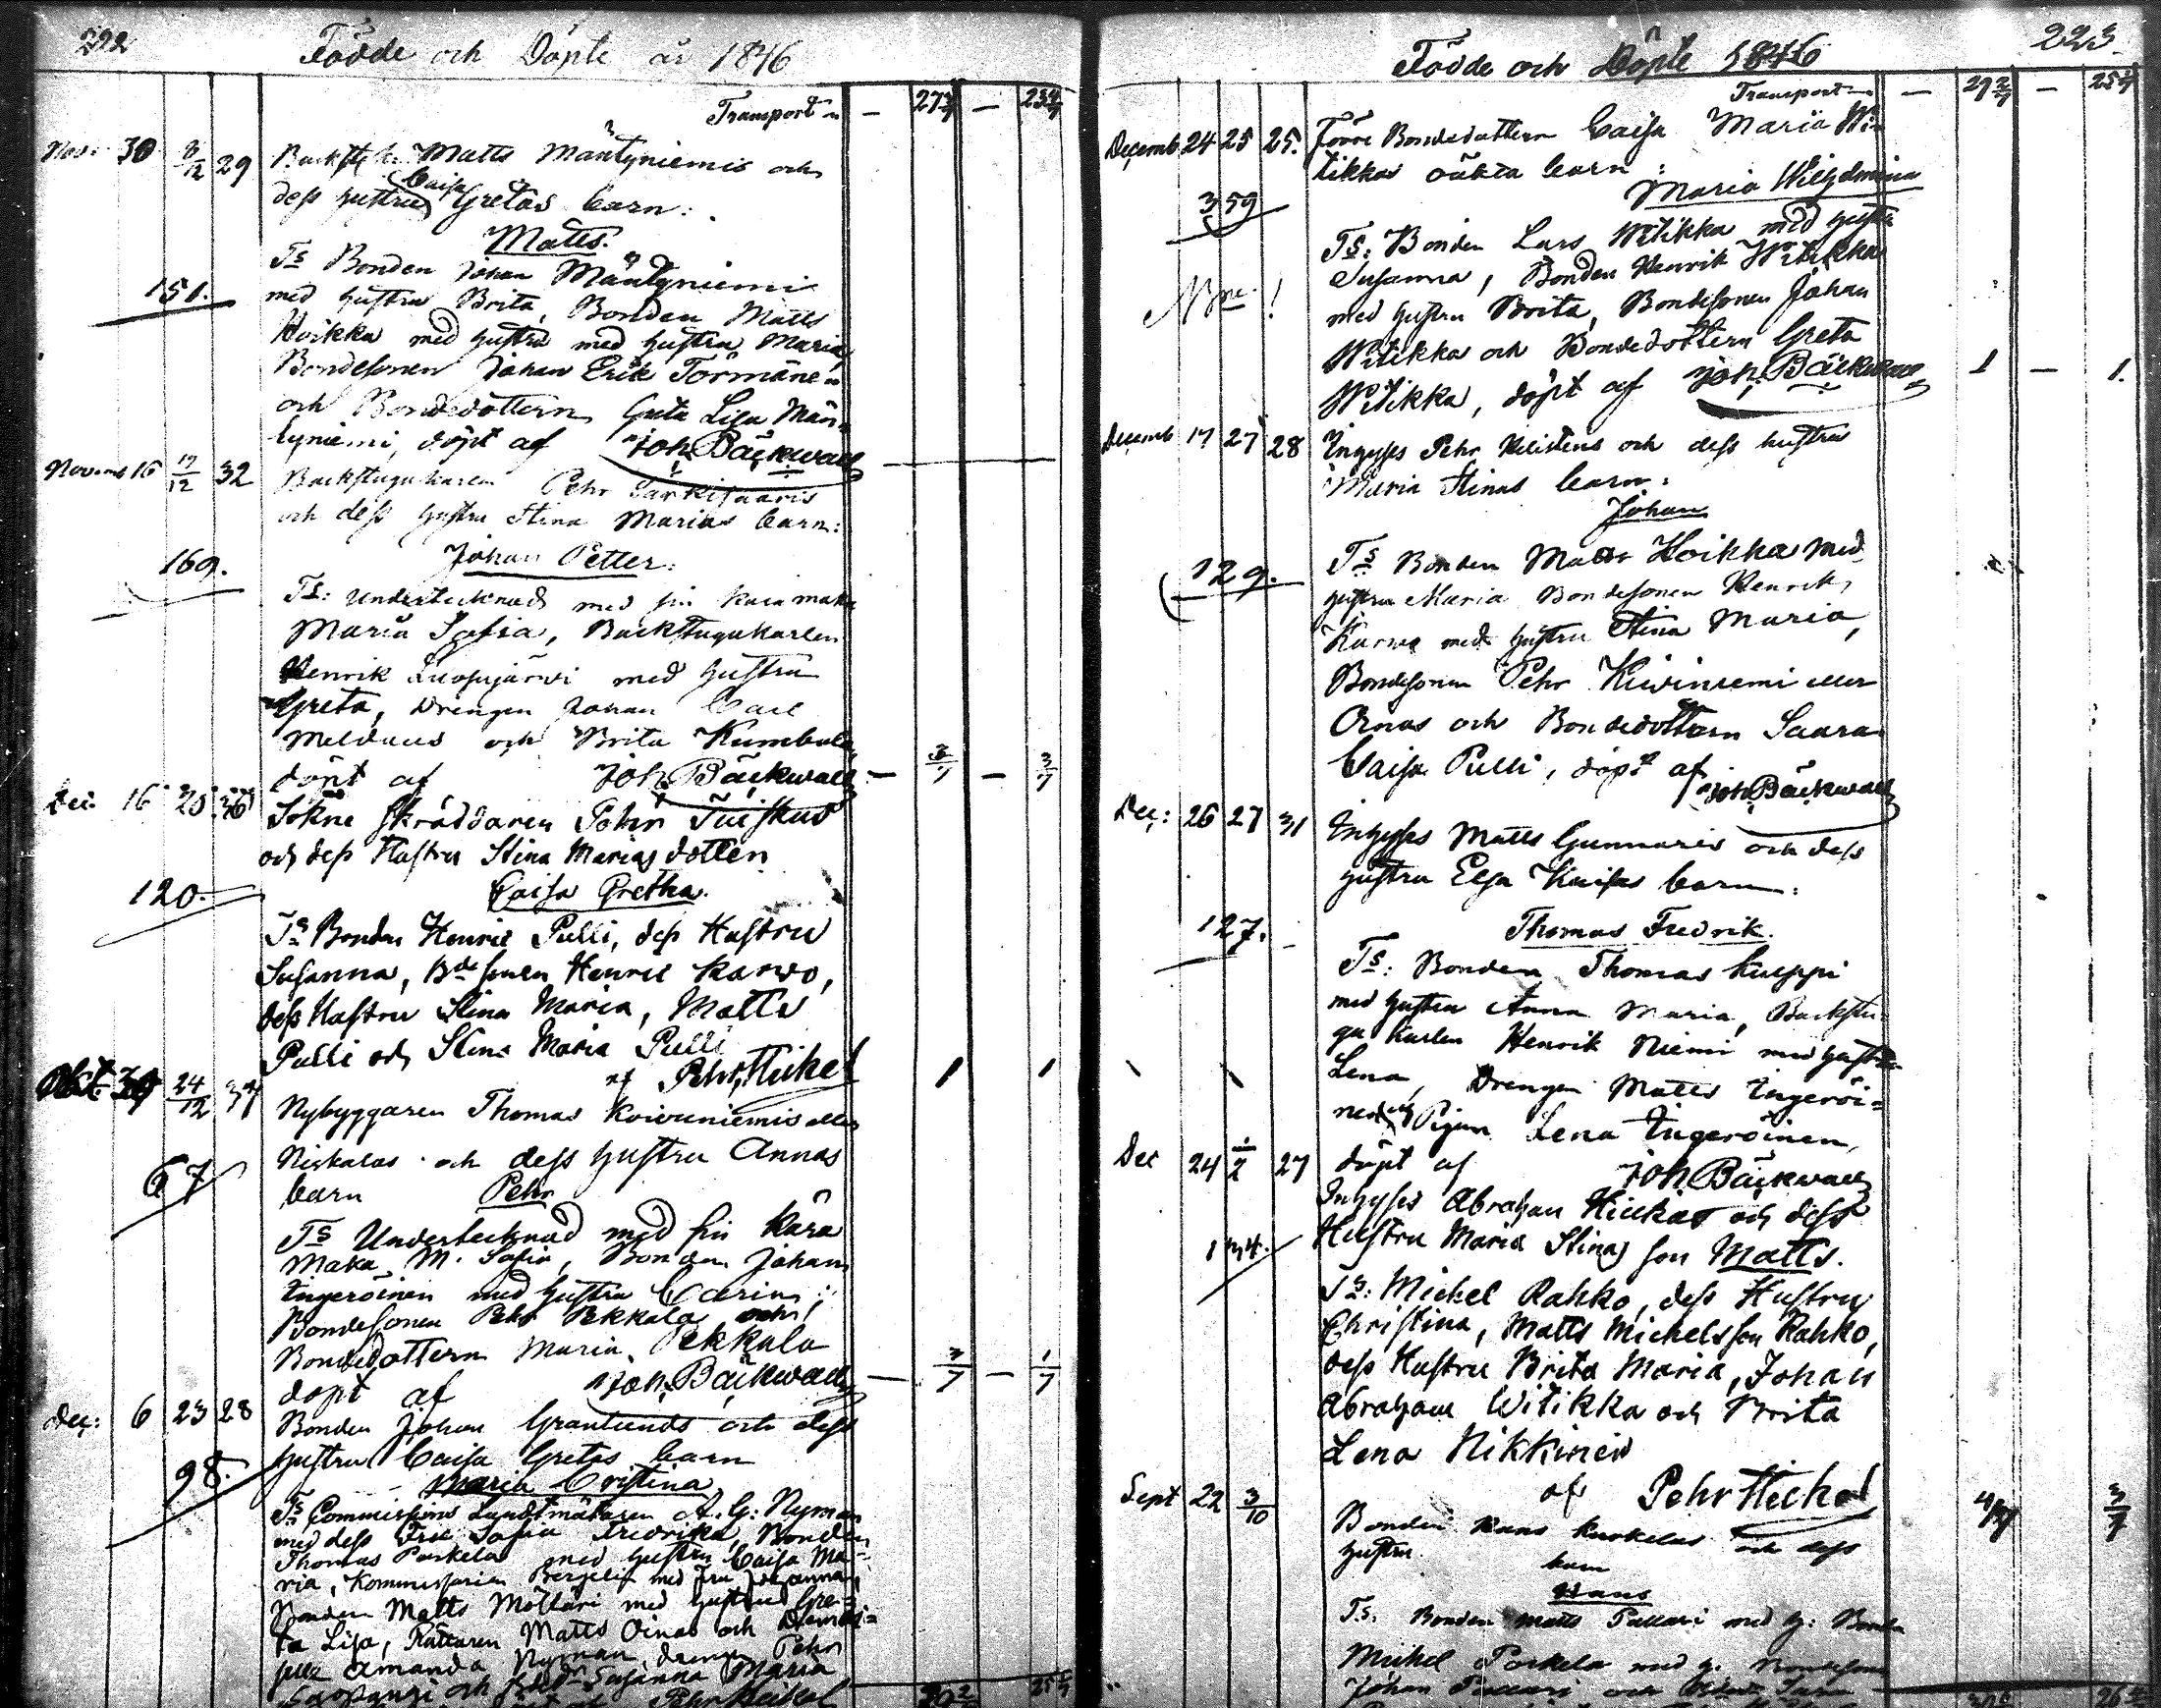 222
Födde och Döpte år 1846
Transport
Nov: 30 29 Matts Mäntyniemis och
dess hustru Caisa Gretas barn:
Matts.
Ts Bonden Johan Mäntyniemi
151.
med hustru Brita, Bonden Matts
Hoikka med hustru med hustru Maria,
Bondesonen Johan Erik Törmäne
och Bondedottern Greta Lisa Män-
tyniemi, döpt af Joh. Bäckwall
16 17/12 32 Backstugukarlen Pehr Särkisaaris
och dess hustru Stina Marias barn:
Johan Petter:
169.
Ts: undertecknad med sin kära maka
Maria Sofia, Backstugukarlen
Henrik Luosujärvi med hustru
Greta, Drengen Johan Carl
och Brita Kumbula
döpt af Joh. Bäckwall
Dec. 16 Sokne skräddaren
och dess Hustru Stina Marias dotter
Caisa Gretha.
120.
Ts Bonden Henric Pulli, dess Hustru
Susanna, Bdesonen Henric Karvo,
dess Hustru Stina Maria, Matts
Pulli och Stina Maria Pulli
af Pehr Heickel
Okt. 24/12 Nybyggaren Thomas Koivuniemis eller
Niskalas och dess hustru Annas
67
barn Pehr
Ts Undertecknad med sin kära
Maka M. Sofia, Bonden Johan
Ingeröinen med hustru Carin;
Bondesonen Pehr Pekkala och
Bondedottern Maria Pekkala
döpt af Joh. Bäckwall
Dec: 6 23 28 Bonden Johan Granlunds och dess
hustru Caisa Gretas barn
98.
Maria Cristina
Ts Commissions Landtmätaren A. G: Nyman
med dess Fru Sofia Fredrika, Bonden
Thomas Porkela med hustru Caisa Ma-
ria, Kommissarien Bergelin med Fru Johanna,
Bonden Matts Möttäri med hustru Gre-
ta Lisa, Rättaren Matts Oinas och
Amanda Nyman, drengen Pehr
och Susanna Maria
Pehr Heickel
223.
Födde och Döpte 1846
Transport
Decemb 24 25 25. Förre Bondedottern Caisa Maria Wi-
tikkas oäkta barn:
Maria Wilhelmina
359
Ts: Bonden Lars Witikka med hustru
Susanna, Bonden Henrik Witikka
med hustru Brita, Bondesonen Johan
Witikka och Bondedottern Greta
Witikka, döpt af Joh. Bäckwall 1 — 1.
Decemb 17 27 28 Inhyses Pehr och dess hustru
Maria Stinas barn:
Johan
129.
Ts Bonden Matts Hoikka med
hustru Maria Bondesonen Henrik
Karvo med hustru Stina Maria,
Bondesonen Pehr Kiviniemi eller
Ornas och Bondedottern Saara
Caisa Pulli, döpt af
Joh. Bäckwall
Dec: 26 27 31 Inhyses Matts Gunnaris och dess
hustru Elsa Kaisas barn:
127.
Thomas Fredrik.
Ts: Bonden Thomas Kuoppi
med hustru Anna Maria, Backstu-
gu karlen Henrik Niemi med hustru
Lena, Drengen Matts Ingeröi-
nen och Pigan Lena Ingeröinen,
Dec 24 27 döpt af Joh Bäckwall
Inhyses Abraham Hiukkas och dess
Hustru Maria Stinas son Matts.
134.
Ts: Michel Rahko, dess Hustru
Christina, Matts Michelsson Rahko,
dess Hustru Brita Maria, Johan
Abraham Witikka och Brita
Lena Nikkinen
af Pehr Heickel
Sept 22 3/10 Bonden Hans Kurkelas och dess
hustru barn
Hans
Ts. Bonden Matts Pallari med h: Bonden
Michel Porkela med h. Bondesonen
Johan Pallari och